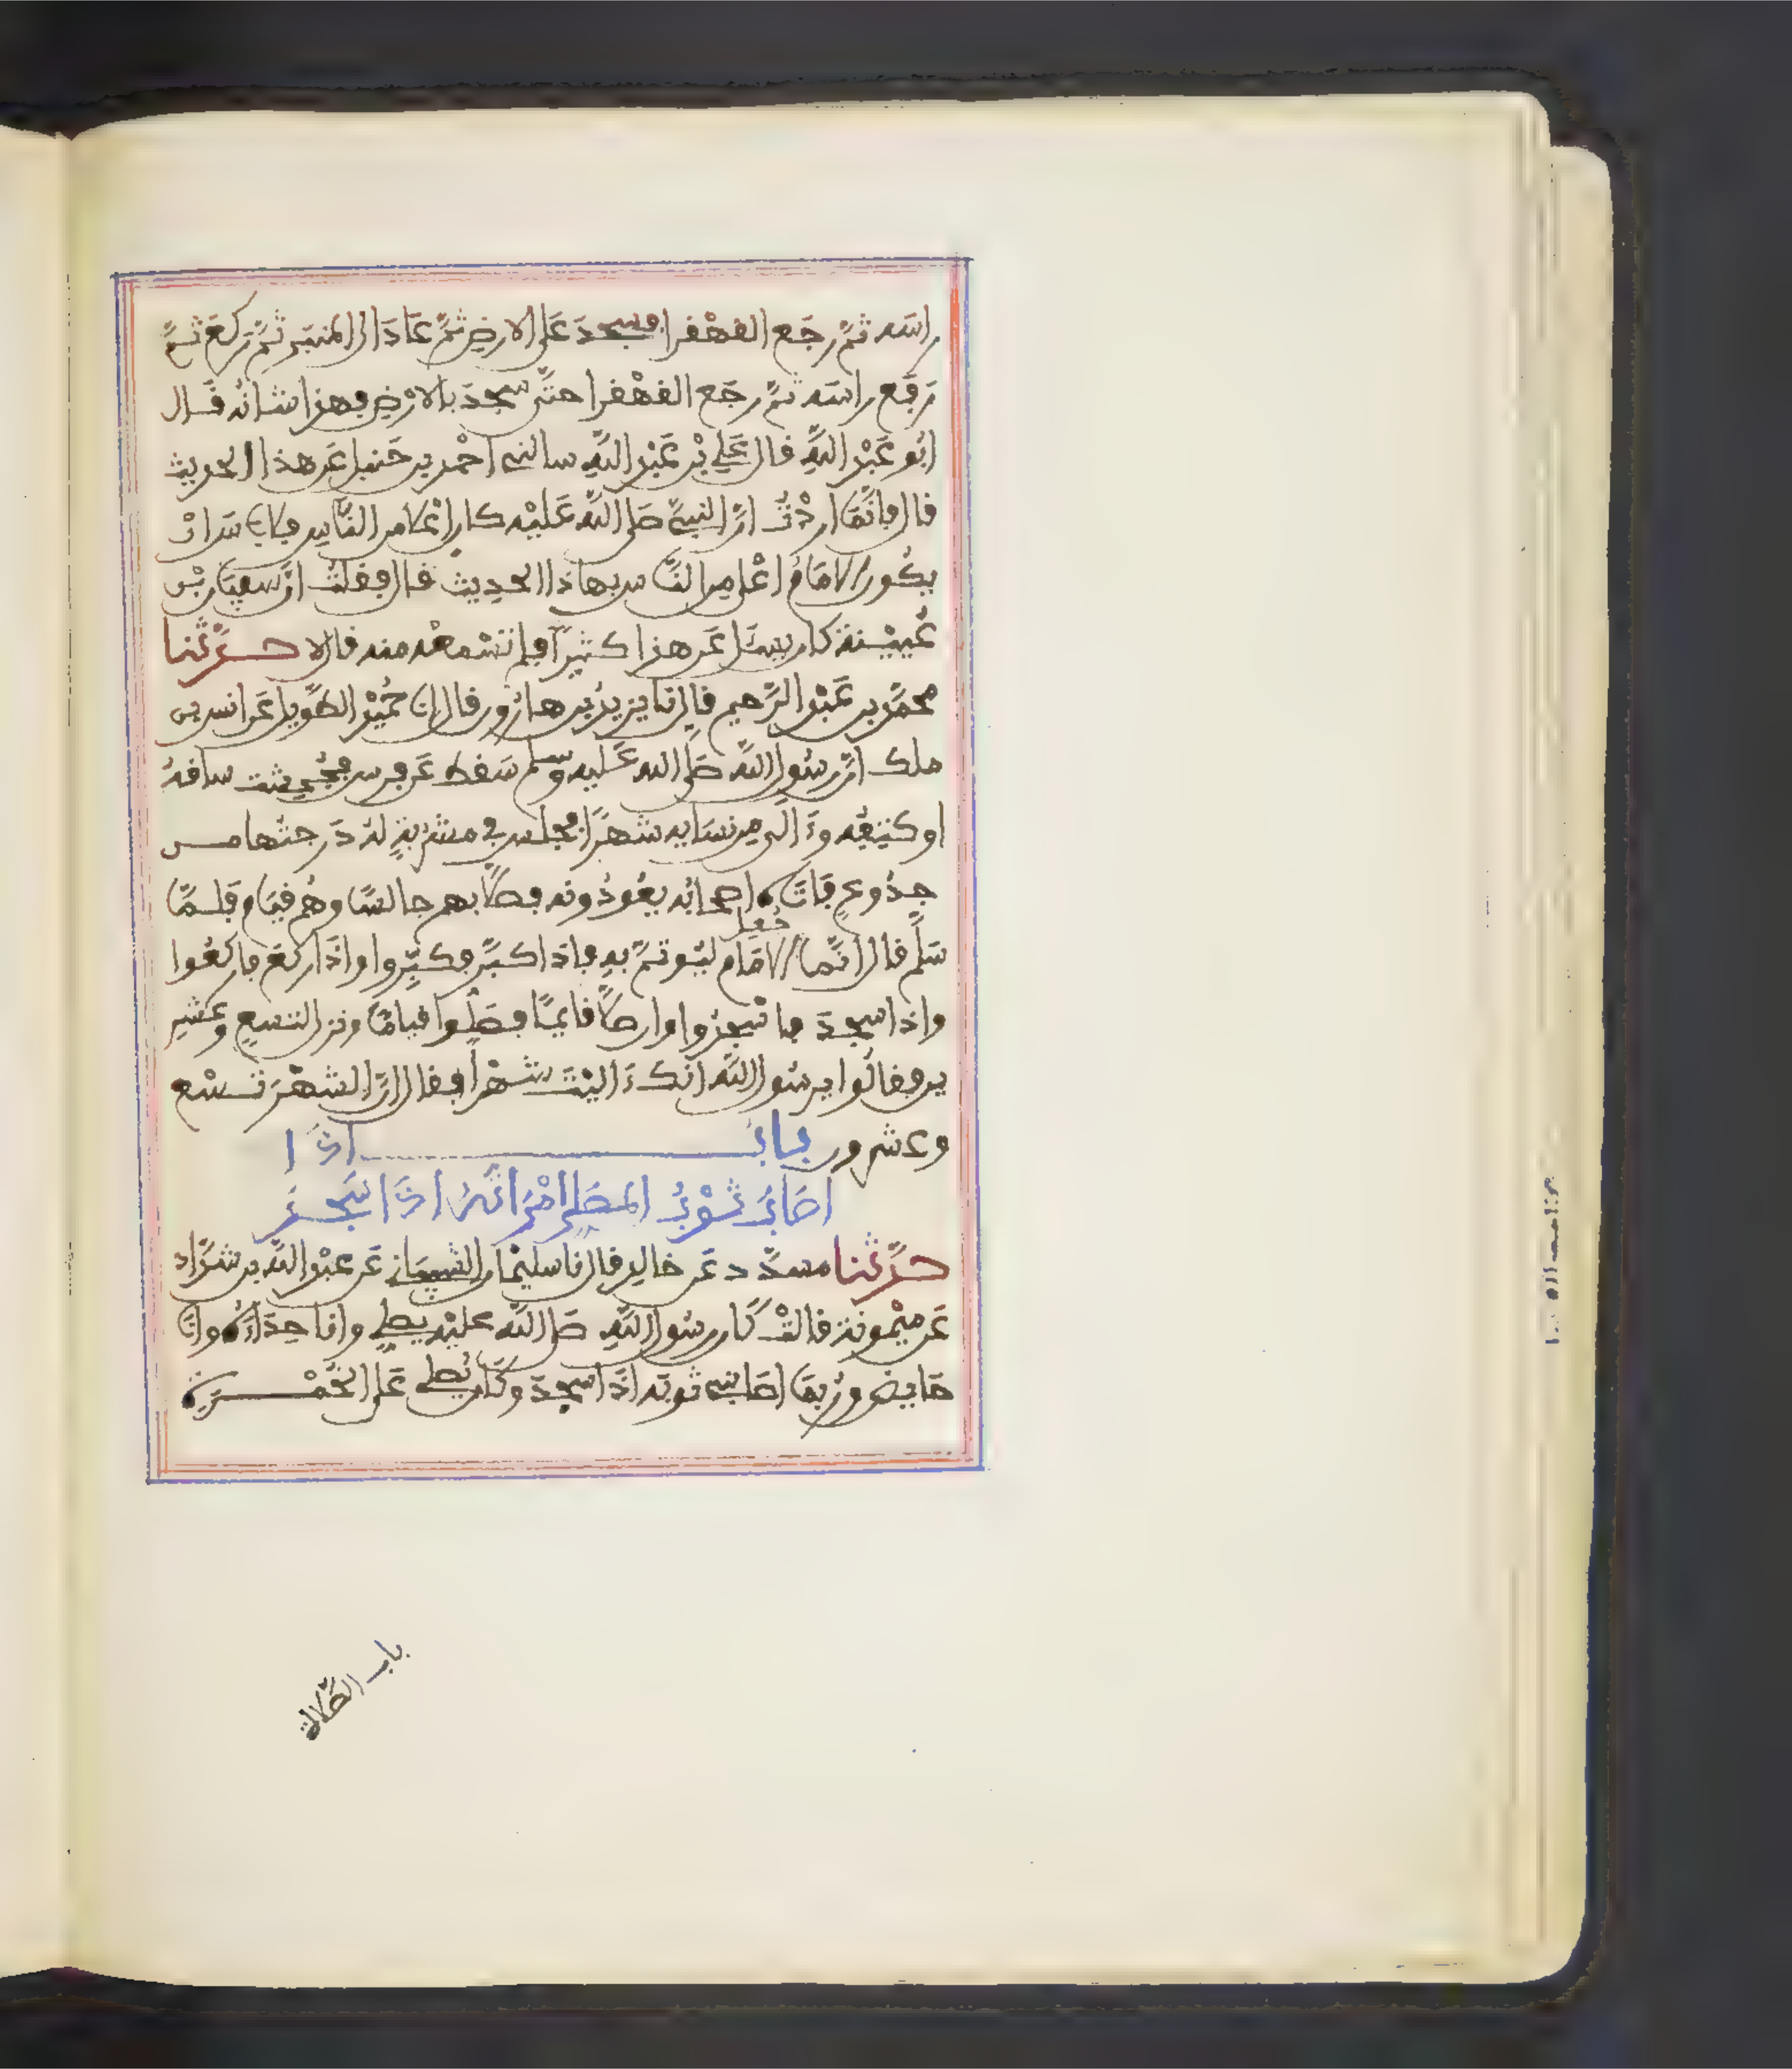 راسَه ثمَّ رجَع القهْقرا فسجدَ عَلى الارضِ ثمَّ عَادَ الى المنبَرِ ثمَّ رَكعَ ثمَّ
رَفَع راسَه ثمَّ رجَع القهْقرا حتَّى سجدَ بالارْضِ فهذا شانُه قَال
ابُو عَبْد اللَّهِ قال عَلي بْن عَبْد اللَّهِ سالني احْمد بن حَنبل عَن هذا الحديث
قال فانَّمَا اردْتُ انَّ النبيَّ صَلى اللَّه عَليْه كان اعْلا من النَّاسِ فلا باسَ انْ
يكُون الامَامُ اعْلى من النَّاس بهاذا الحدِيث قال فقلتُ انَّ سفيَان بْن
عُيَيْنة كان يسْئَل عَن هذا كثيرًا فلم تسْمعْه منه قال لا حـدَّثنا
محمَّد بن عَبْد الرَّحيم قال نا يزيدُ بن هارُون قال انا حُمَيْد الطَّوِيل عَن انس بن
ملك انَّ رسُول اللَّه صَلى الله عَليه وسلم سَقط عَن فرس فجُحِشت ساقهُ
او كتِفُه وءَالى مِن نسَايه شهرًا فجلس في مشرُبةٍ لهُ دَرجتُها مـن
جذُوعٍ فاتَاه اصحابُه يعُودُونه فصلَّا بهم جالسًا وهُم قيَام فلـمَّا
سَلَّم قال انَّما جُعل الامَام ليُوتمَّ بهِ فاذا كبَّر فكبِّروا واذَا ركعَ فاركعُوا
واذا سجدَ فاسْجدُوا وان صلَّا قايمًا فصَلُّوا قيامًا ونزل لتسعٍ وعشرِ
ين فقالُوا يرسُول اللَّه انك ءَاليْتَ شهْرًا فقال انَّ الشهْرَ تسْع
وعشرون بـابُ اذَا
اصَابَ ثـوْبُ المصَلى امْرَاتَهُ اذَا سَجـدَ
حـدَّثنا مسدَّد عَن خالدٍ قال نا سليْمان الشيبَاني عَن عبْد اللَّه بن شدَّادٍ
عَن ميْمونة قالتْ كَان رسُول اللَّهِ صَلى اللَّه عليْه يصلي وانا حِذَاءَهُ وانَا
حَايض ورُبمَا اصَابني ثوبُه اذَا سجدَ وكَان يُصلي عَلى الخُمْـرَةِ
باب الصَّلاة